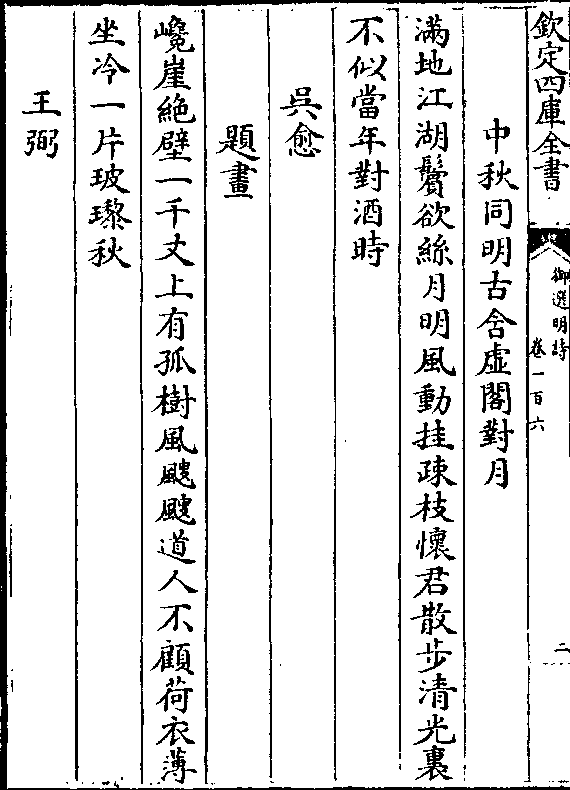 欽定四庫全書
御選明詩
卷一百六
二
中秋同明古舍虛閣對月
滿地江湖鬢欲絲月明風動挂疎枝懷君散步清光裏
不似當年對酒時
吳愈
題畫
巉崖絶壁一千丈上有孤樹風颼颼道人不顧荷衣薄
坐冷一片玻瓈秋
王弼